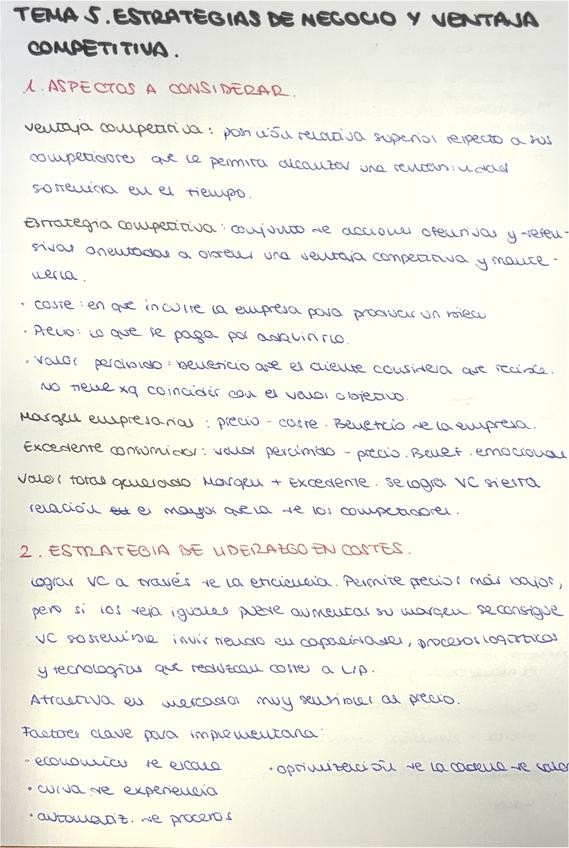 TEMA 5. ESTRATEGIAS DE NEGOCIO Y VENTAJA
COMPETITIVA.
1. ASPECTOS A CONSIDERAR.
Ventaja competitiva: posición relativa superior respecto a sus
competidores que le permita alcanzar una rentabilidad
sostenida en el tiempo.
Estrategia competitiva: conjunto de acciones ofensivas y defen-
sivas orientadas a obtener una ventaja competitiva y mante-
nerla.
· Coste: en que incurre la empresa para producir un
· Precio: lo que se paga por adquirirlo.
· Valor percibido: beneficio que el cliente considera que recibe.
No tiene xq coincidir con el valor objetivo.
Margen empresarial: precio - coste. Beneficio de la empresa.
Excedente consumidor: valor percibido - precio. Benef. emocional
Valor total generado Margen + Excedente. Se logra VC si esta
relación es mayor que la de los competidores.
2. ESTRATEGIA DE LIDERAZGO EN COSTES.
Lograr VC a través de la eficiencia. Permite precios más bajos,
pero si los deja iguales puede aumentar su margen. Se consigue
VC sostenible invirtiendo en capacidades, procesos logísticos
y tecnologías que reduzcan costes a L/P.
Atractiva en mercados muy sensibles al precio.
Factores clave para implementarla:
· economías de escala · optimización de la cadena de valor
· curva de experiencia
· automatiz. de procesos